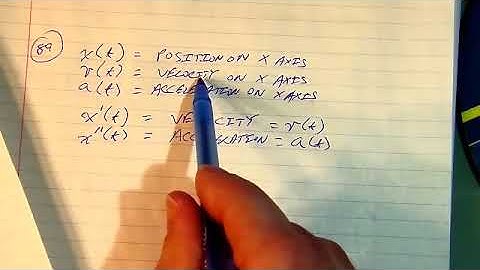 89
x(t) = POSITION ON X AXIS
v(t) = VELOCITY ON X AXIS
a(t) = ACCELERATION ON X AXIS
x'(t) = VELOCITY = v(t)
x''(t) = ACCELERATION = a(t)